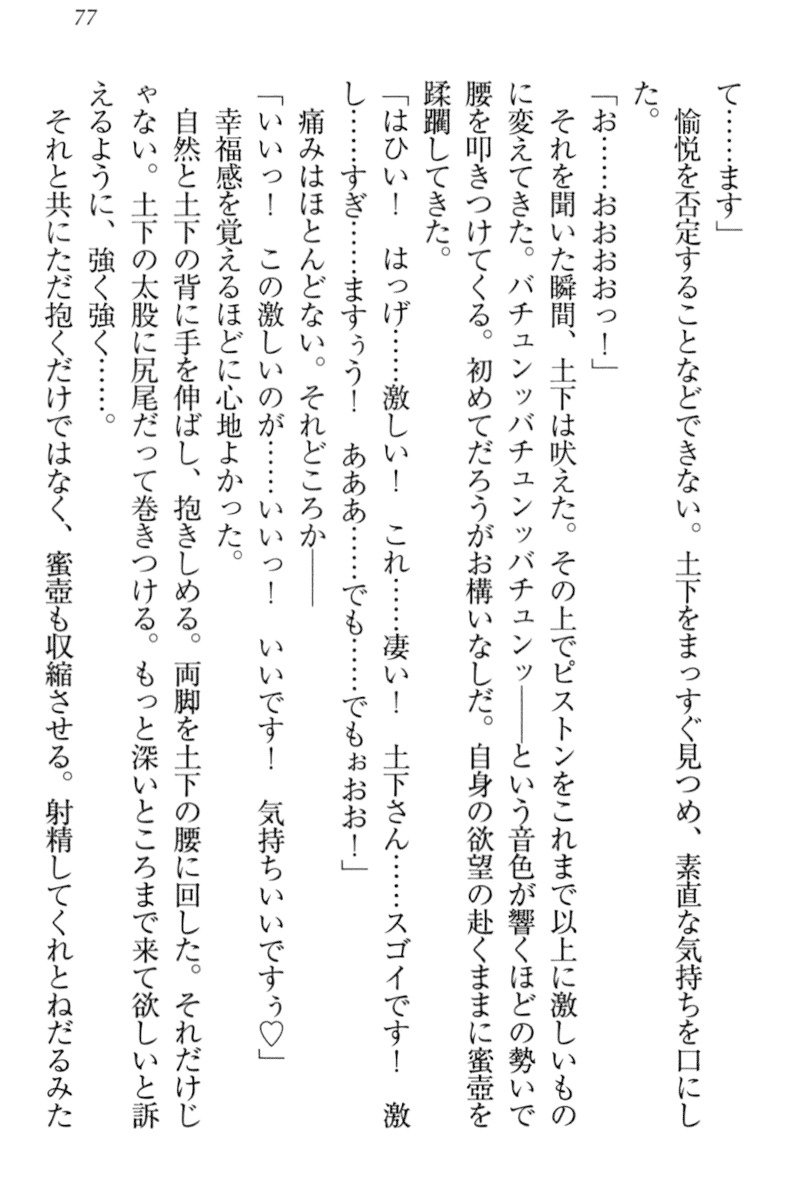 77
て……ます」
　愉悦を否定することなどできない。土下をまっすぐ見つめ、素直な気持ちを口にし
た。
「お……おおおおっ！」
　それを聞いた瞬間、土下は吠えた。その上でピストンをこれまで以上に激しいもの
に変えてきた。バチュンッバチュンッバチュンッ――という音色が響くほどの勢いで
腰を叩きつけてくる。初めてだろうがお構いなしだ。自身の欲望の赴くままに蜜壺を
蹂躙してきた。
「はひぃ！　はっげ……激しい！　これ……凄い！　土下さん……スゴイです！　激
し……すぎ……ますぅう！　あああ……でも……でもぉおお！」
　痛みはほとんどない。それどころか――
「いいっ！　この激しいのが……いいっ！　いいです！　気持ちいいですぅ♡」
　幸福感を覚えるほどに心地よかった。
　自然と土下の背に手を伸ばし、抱きしめる。両脚を土下の腰に回した。それだけじ
ゃない。土下の太股に尻尾だって巻きつける。もっと深いところまで来て欲しいと訴
えるように、強く強く……。
　それと共にただ抱くだけではなく、蜜壺も収縮させる。射精してくれとねだるみた